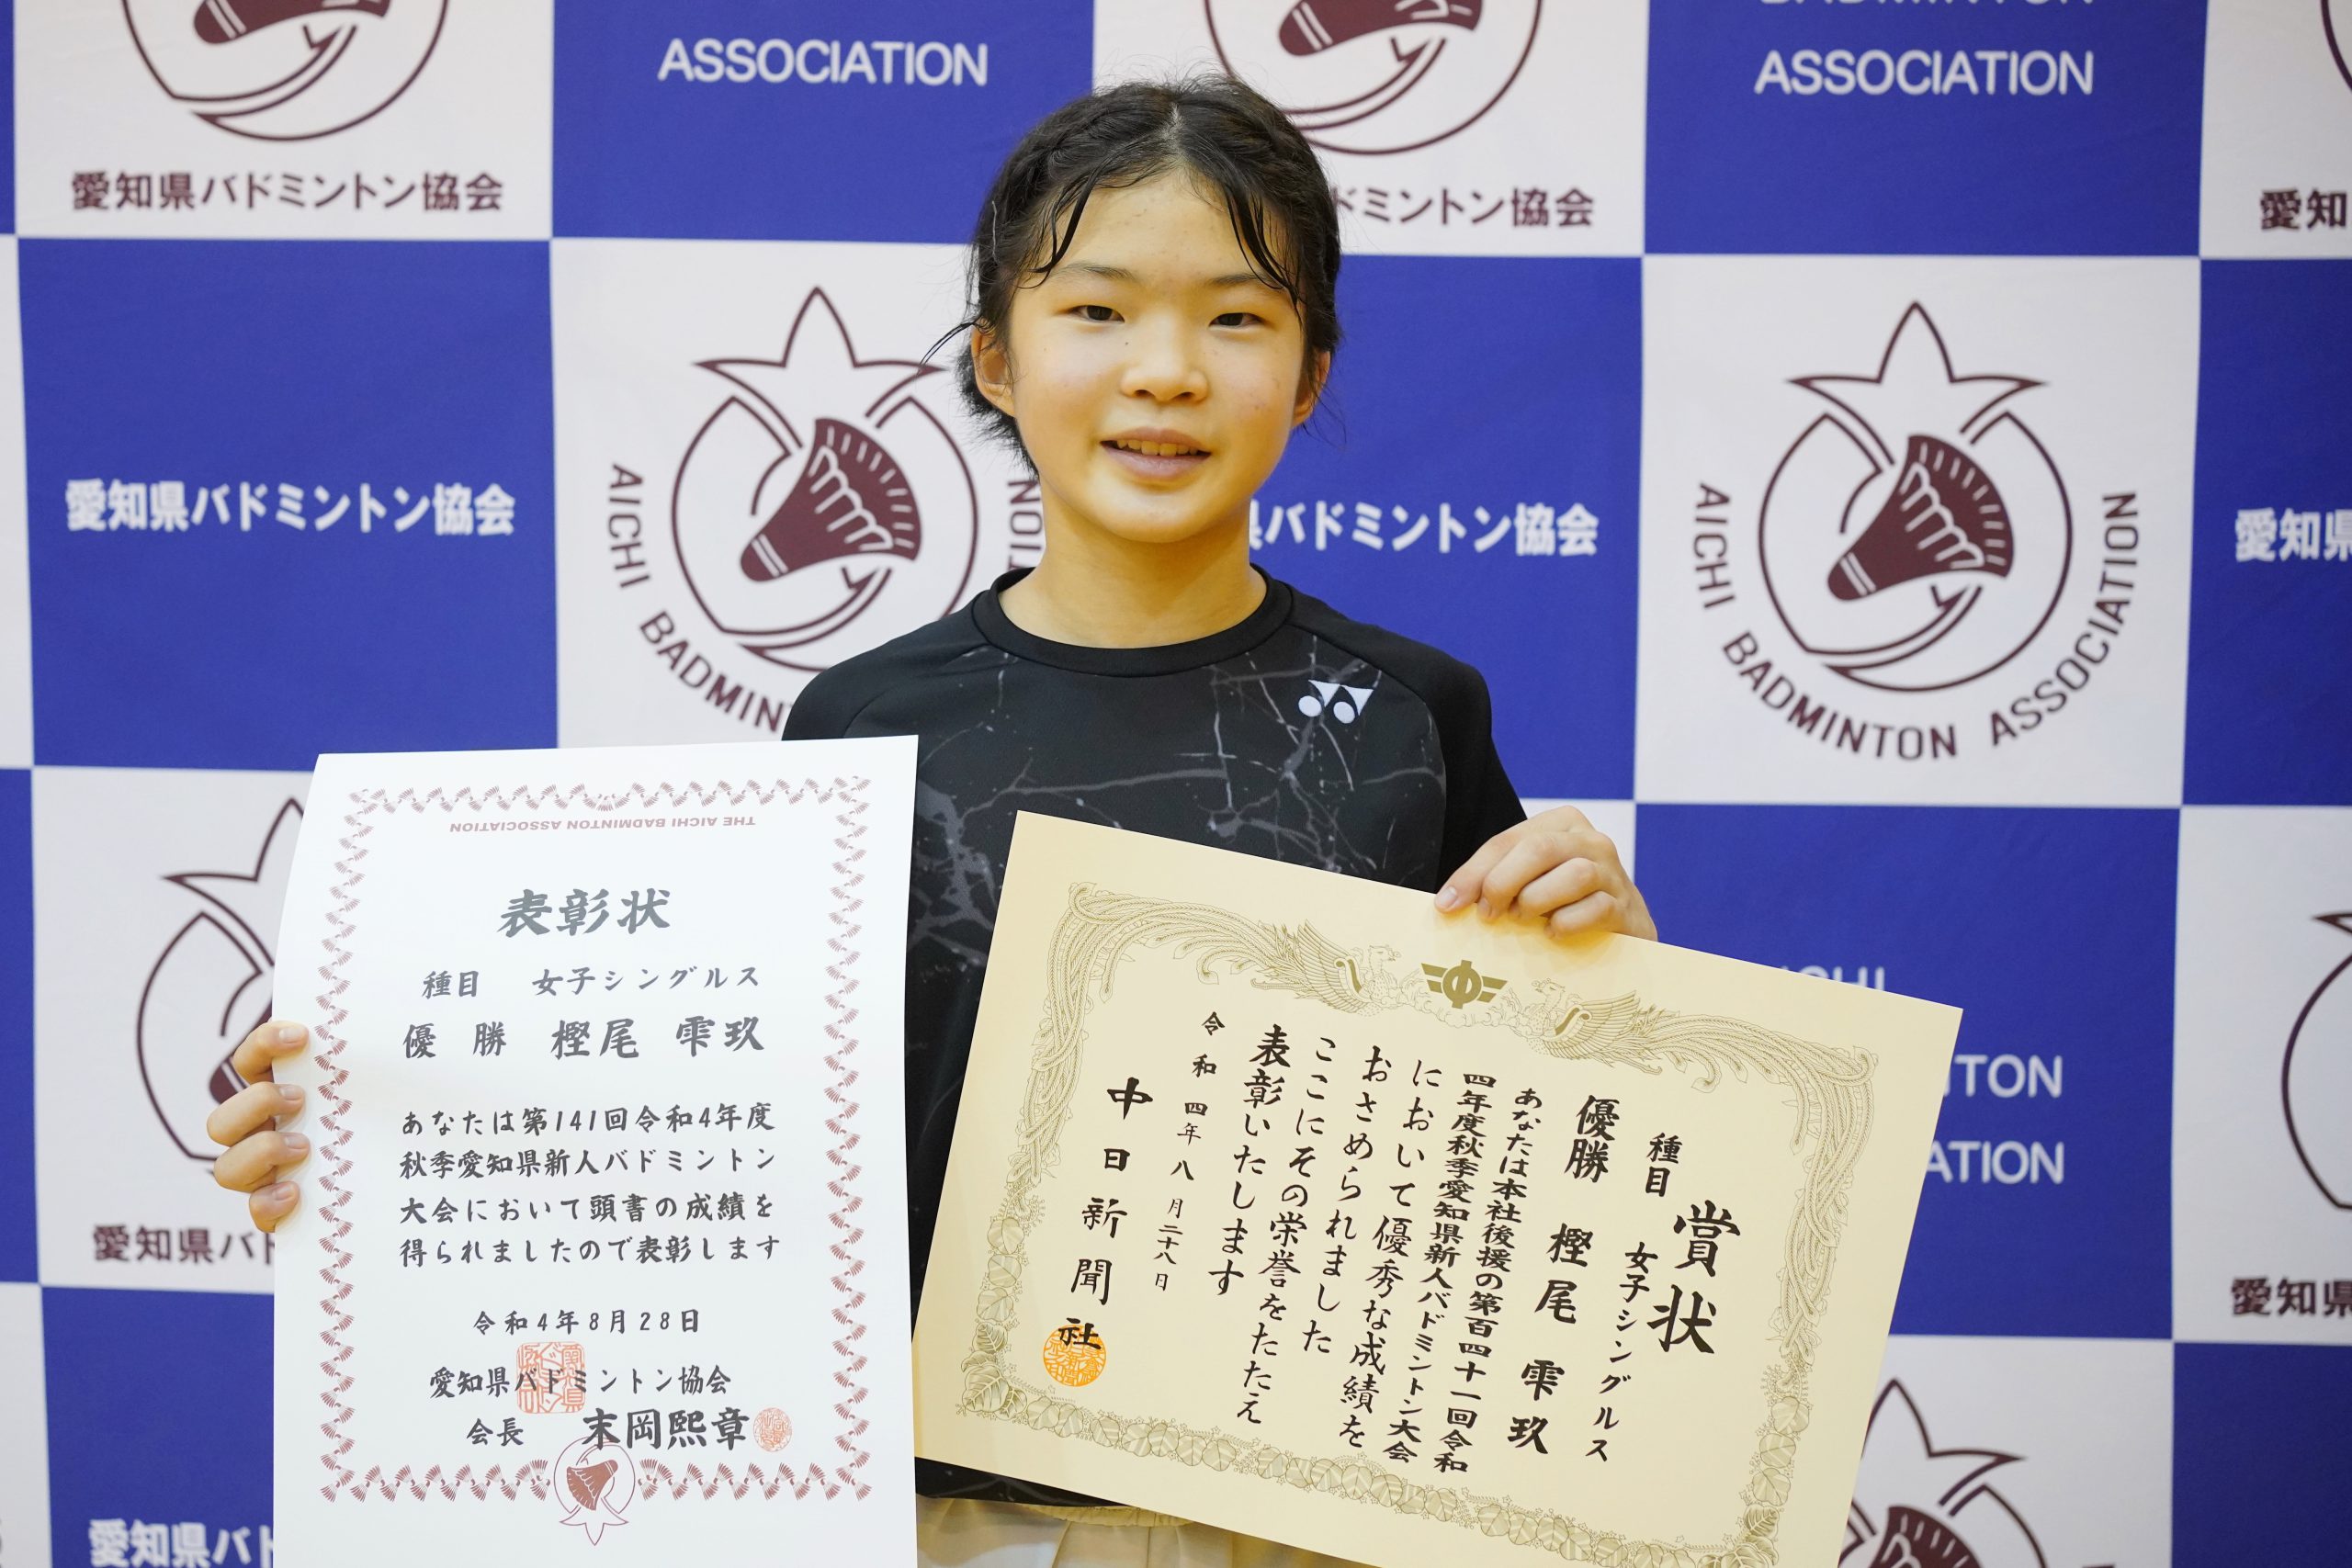 ASSOCIATION
BADMINTON
ASSOCIATION
愛知県バドミントン協会
ドミントン協会
愛知
愛知県バドミントン協会
県バドミントン協会
愛知県
AICHI BADMINTON
TION
AICHI BADMINTON ASSOCIATION
THE AICHI BADMINTON ASSOCIATION
表彰状
種目 女子シングルス
優勝 樫尾 雫玖
あなたは第141回令和4年度
秋季愛知県新人バドミントン
大会において頭書の成績を
得られましたので表彰します
令和4年8月28日
愛知県バドミントン協会
会長 末岡熙章
賞状
種目 女子シングルス
優勝 樫尾 雫玖
あなたは本社後援の第百四十一回令和
四年度秋季愛知県新人バドミントン大会
において優秀な成績を
おさめられました
ここにその栄誉をたたえ
表彰いたします
令和四年八月二十八日
中日新聞社
CHI
NTON
ATION
愛知県バド
愛知県
愛知県バド